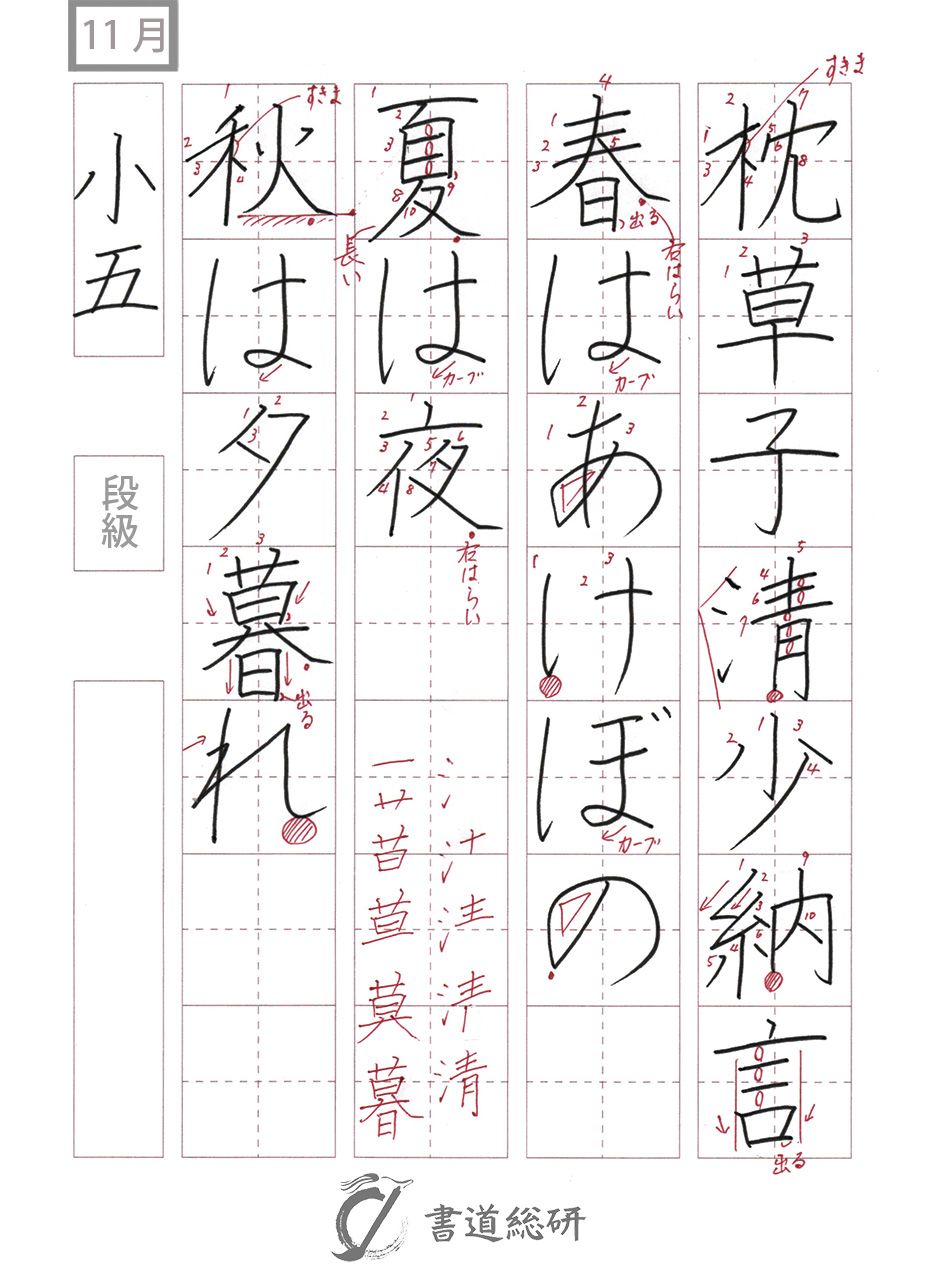 11月
枕草子清少納言
すきま
出る
春はあけぼの
出る
右はらい
カーブ
カーブ
夏は夜
長い
カーブ
右はらい
氵 清
一 艹 苜 莫 暮
秋は夕暮れ
すきま
出る
小五
段級
書道総研